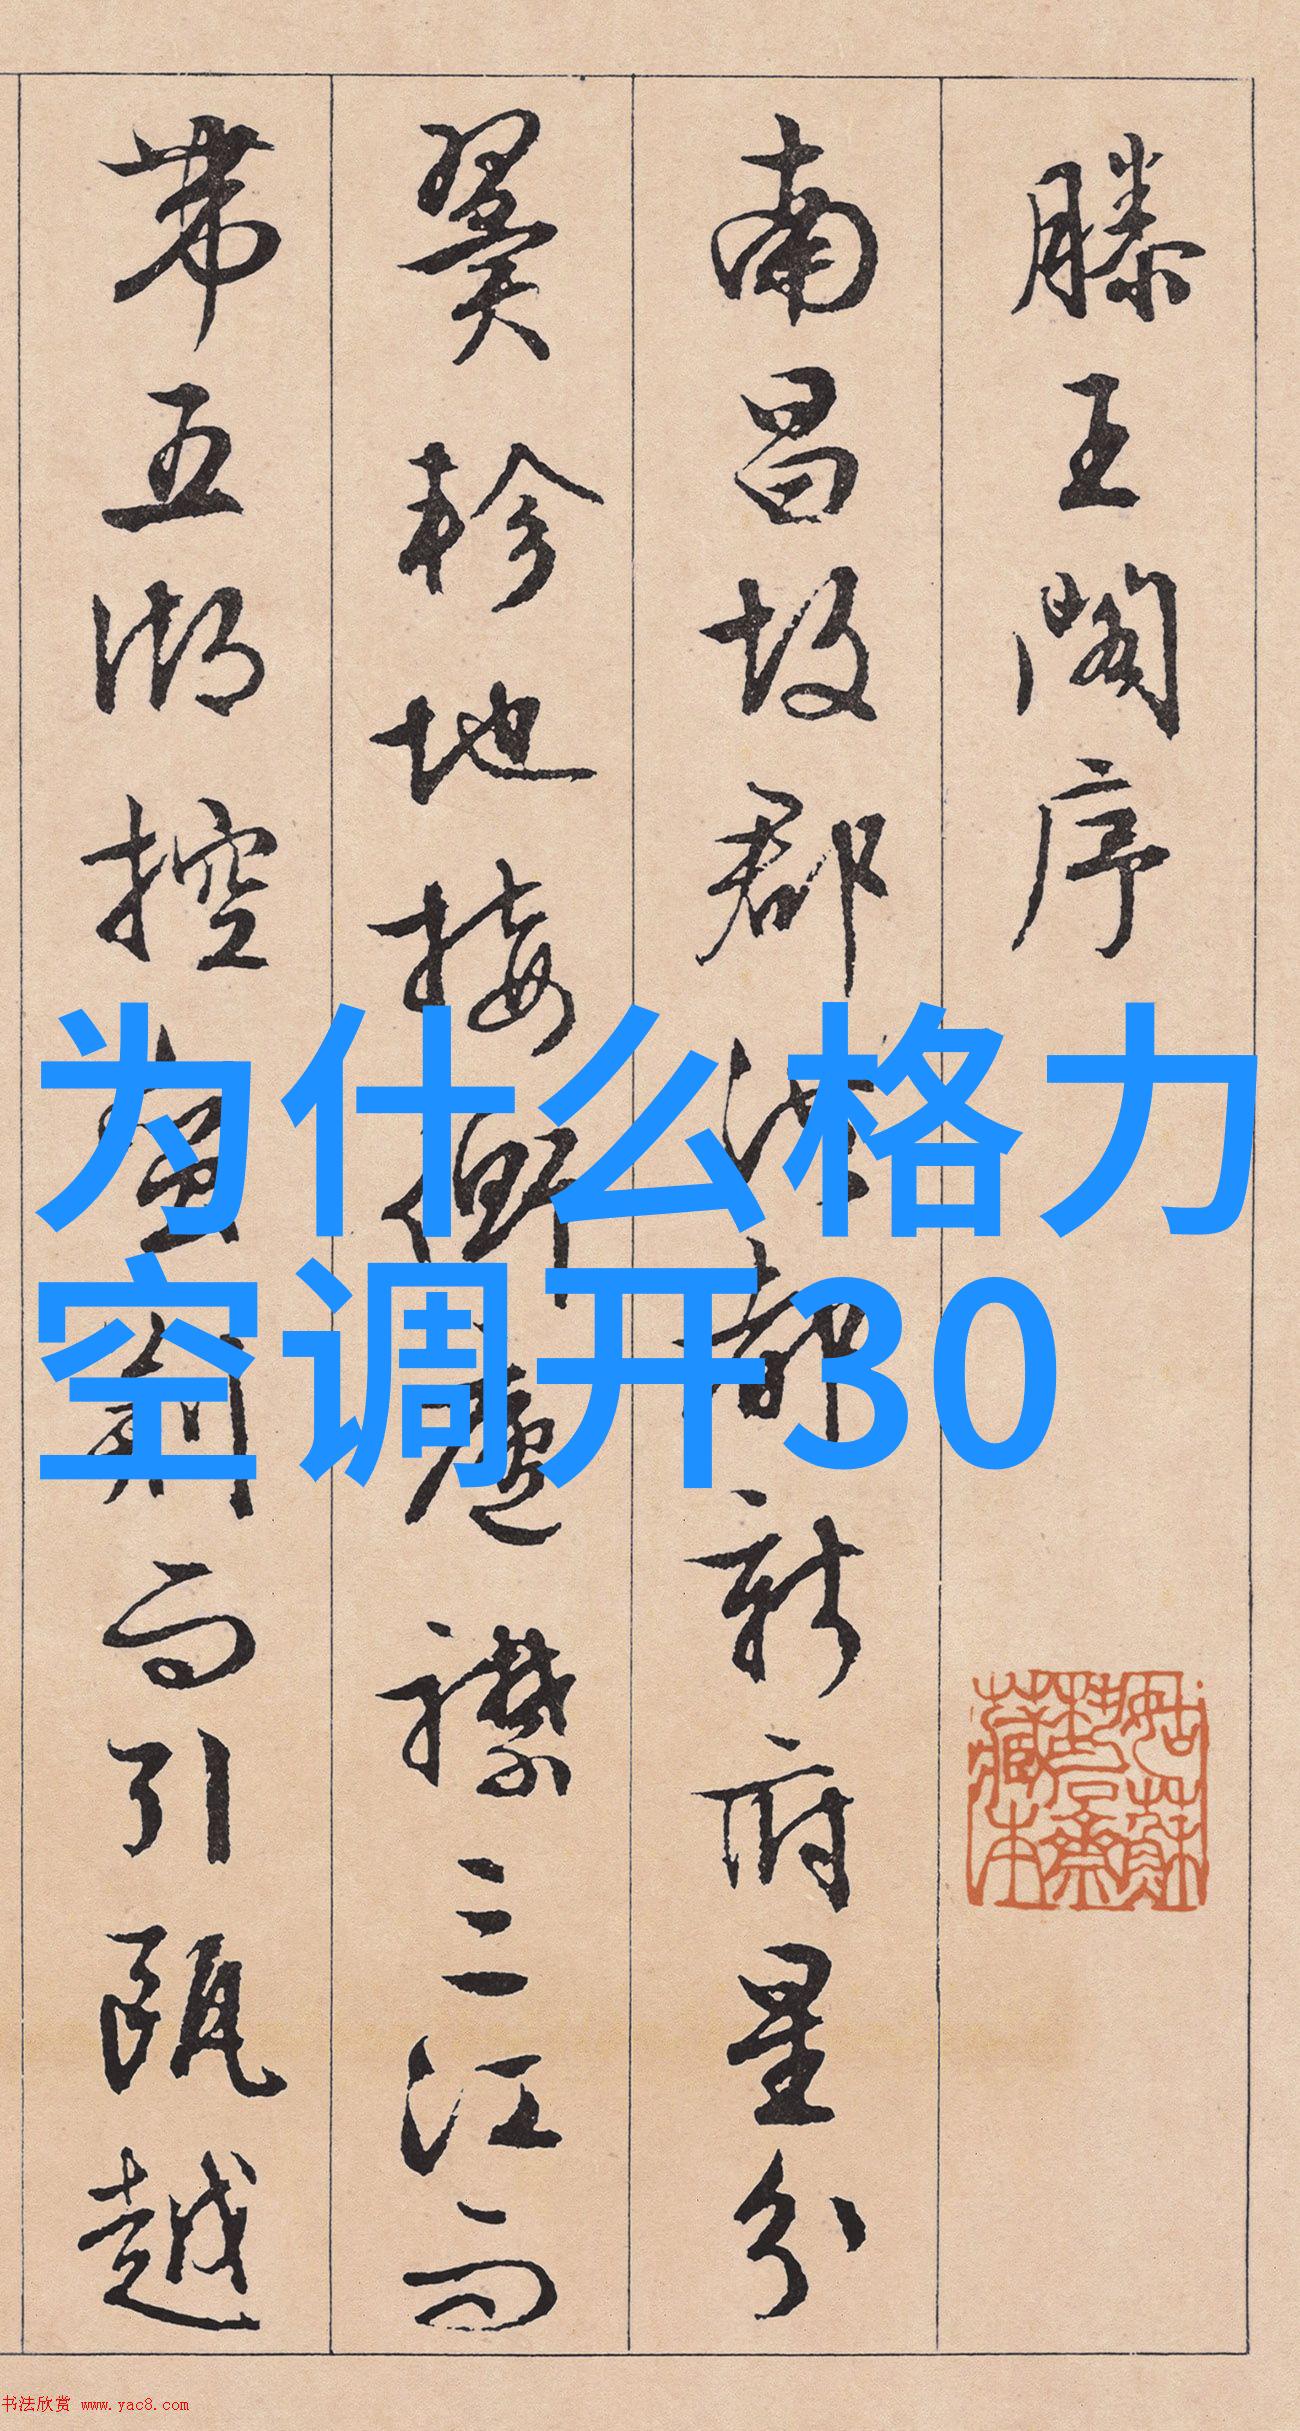 滕王閣序
南昌故郡洪都新府星分
翼軫地接衡廬襟三江而
帶五湖控蠻荆而引甌越
为什么格力
空调开30
姑蘇
齋
藏本
书法欣赏 www.yac8.com